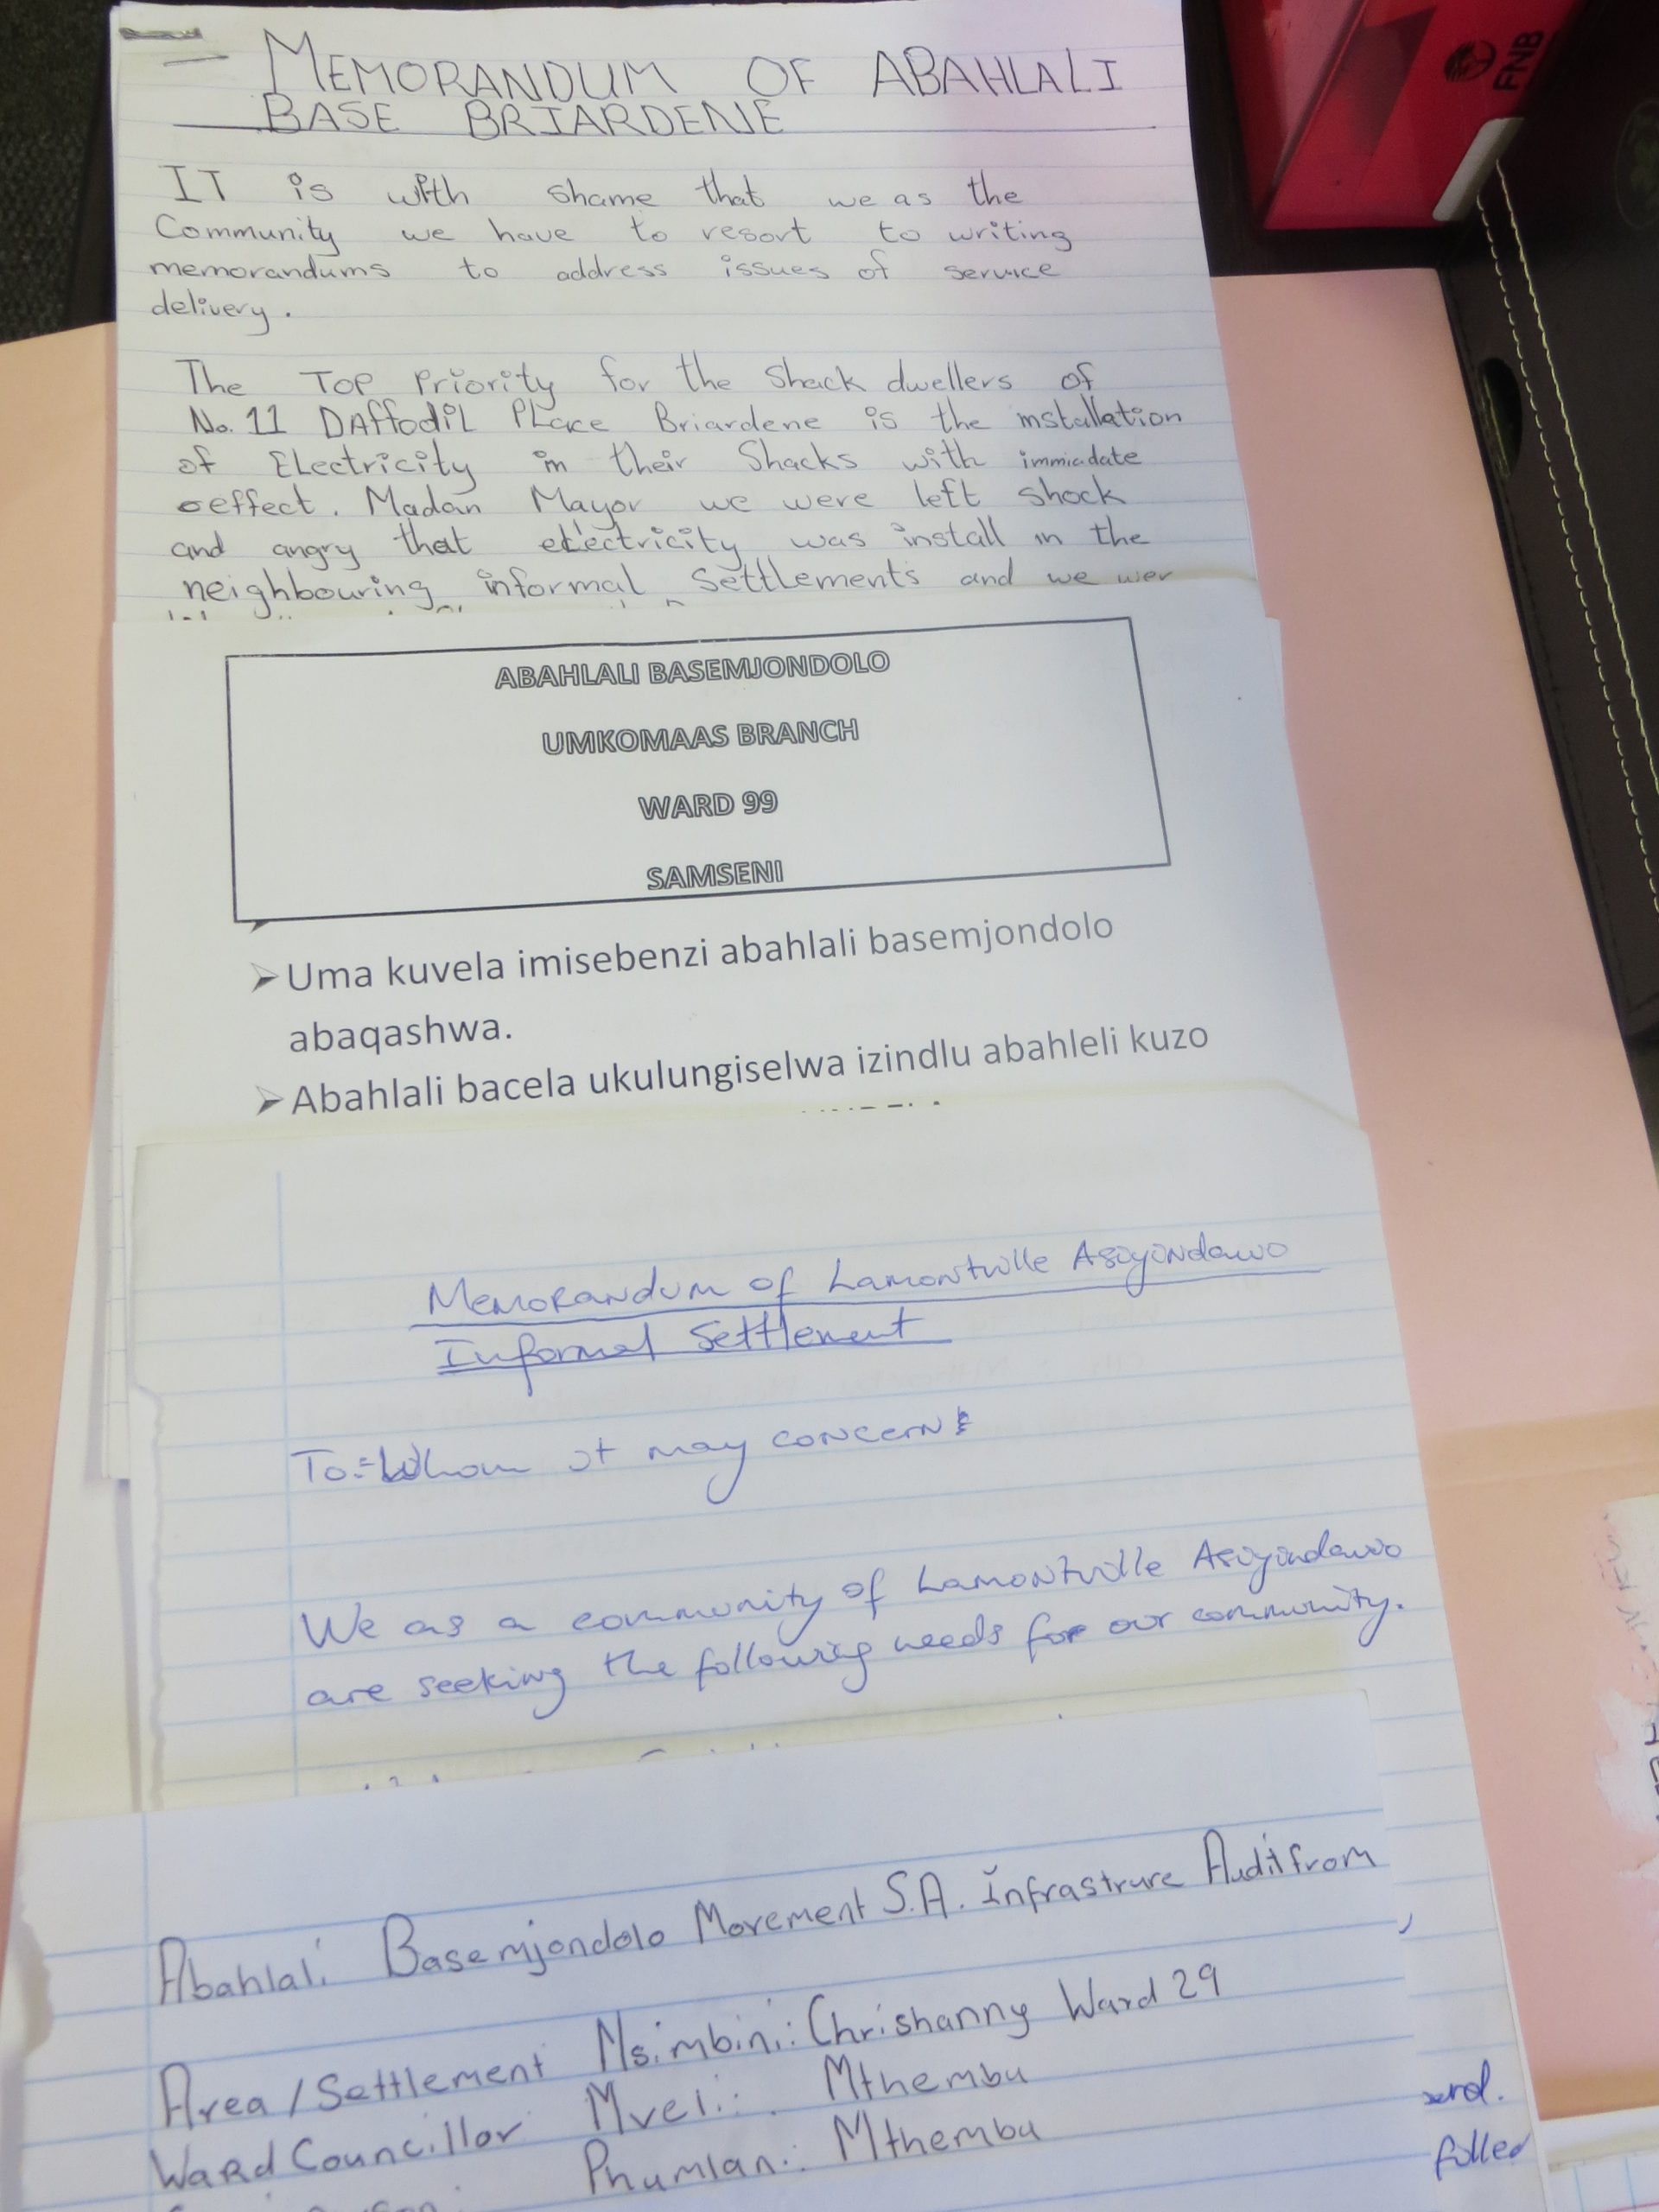 MEMORANDUM OF ABAHLALI
BASE BRIARDENE
IT is with shame that we as the
Community we have to resort to writing
memorandums to address issues of service
delivery.
The Top Priority for the Shack dwellers of
No. 11 DAffodiL PLace Briardene is the installation
of ELectricity in their Shacks with immiadate
effect. Madan Mayor we were left shock
and angry that electricity was install in the
neighbouring informal Settlements and we wer
ABAHLALI BASEMJONDOLO
UMKOMAAS BRANCH
WARD 99
SAMSENI
➢Uma kuvela imisebenzi abahlali basemjondolo
abaqashwa.
➢Abahlali bacela ukulungiselwa izindlu abahleli kuzo
Memorandum of Lamontville Asiyindawo
Informal Settlement
To:-Whom it may concern:
We as a community of Lamontville Asiyindawo
are seeking the following needs for our community.
Abahlali Basemjondolo Movement S.A. Infrastrure Audit from
Area / Settlement Nsimbini: Chrishanny Ward 29
Ward Councillor Mveli: Mthembu
Phumlani: Mthembu
FNB